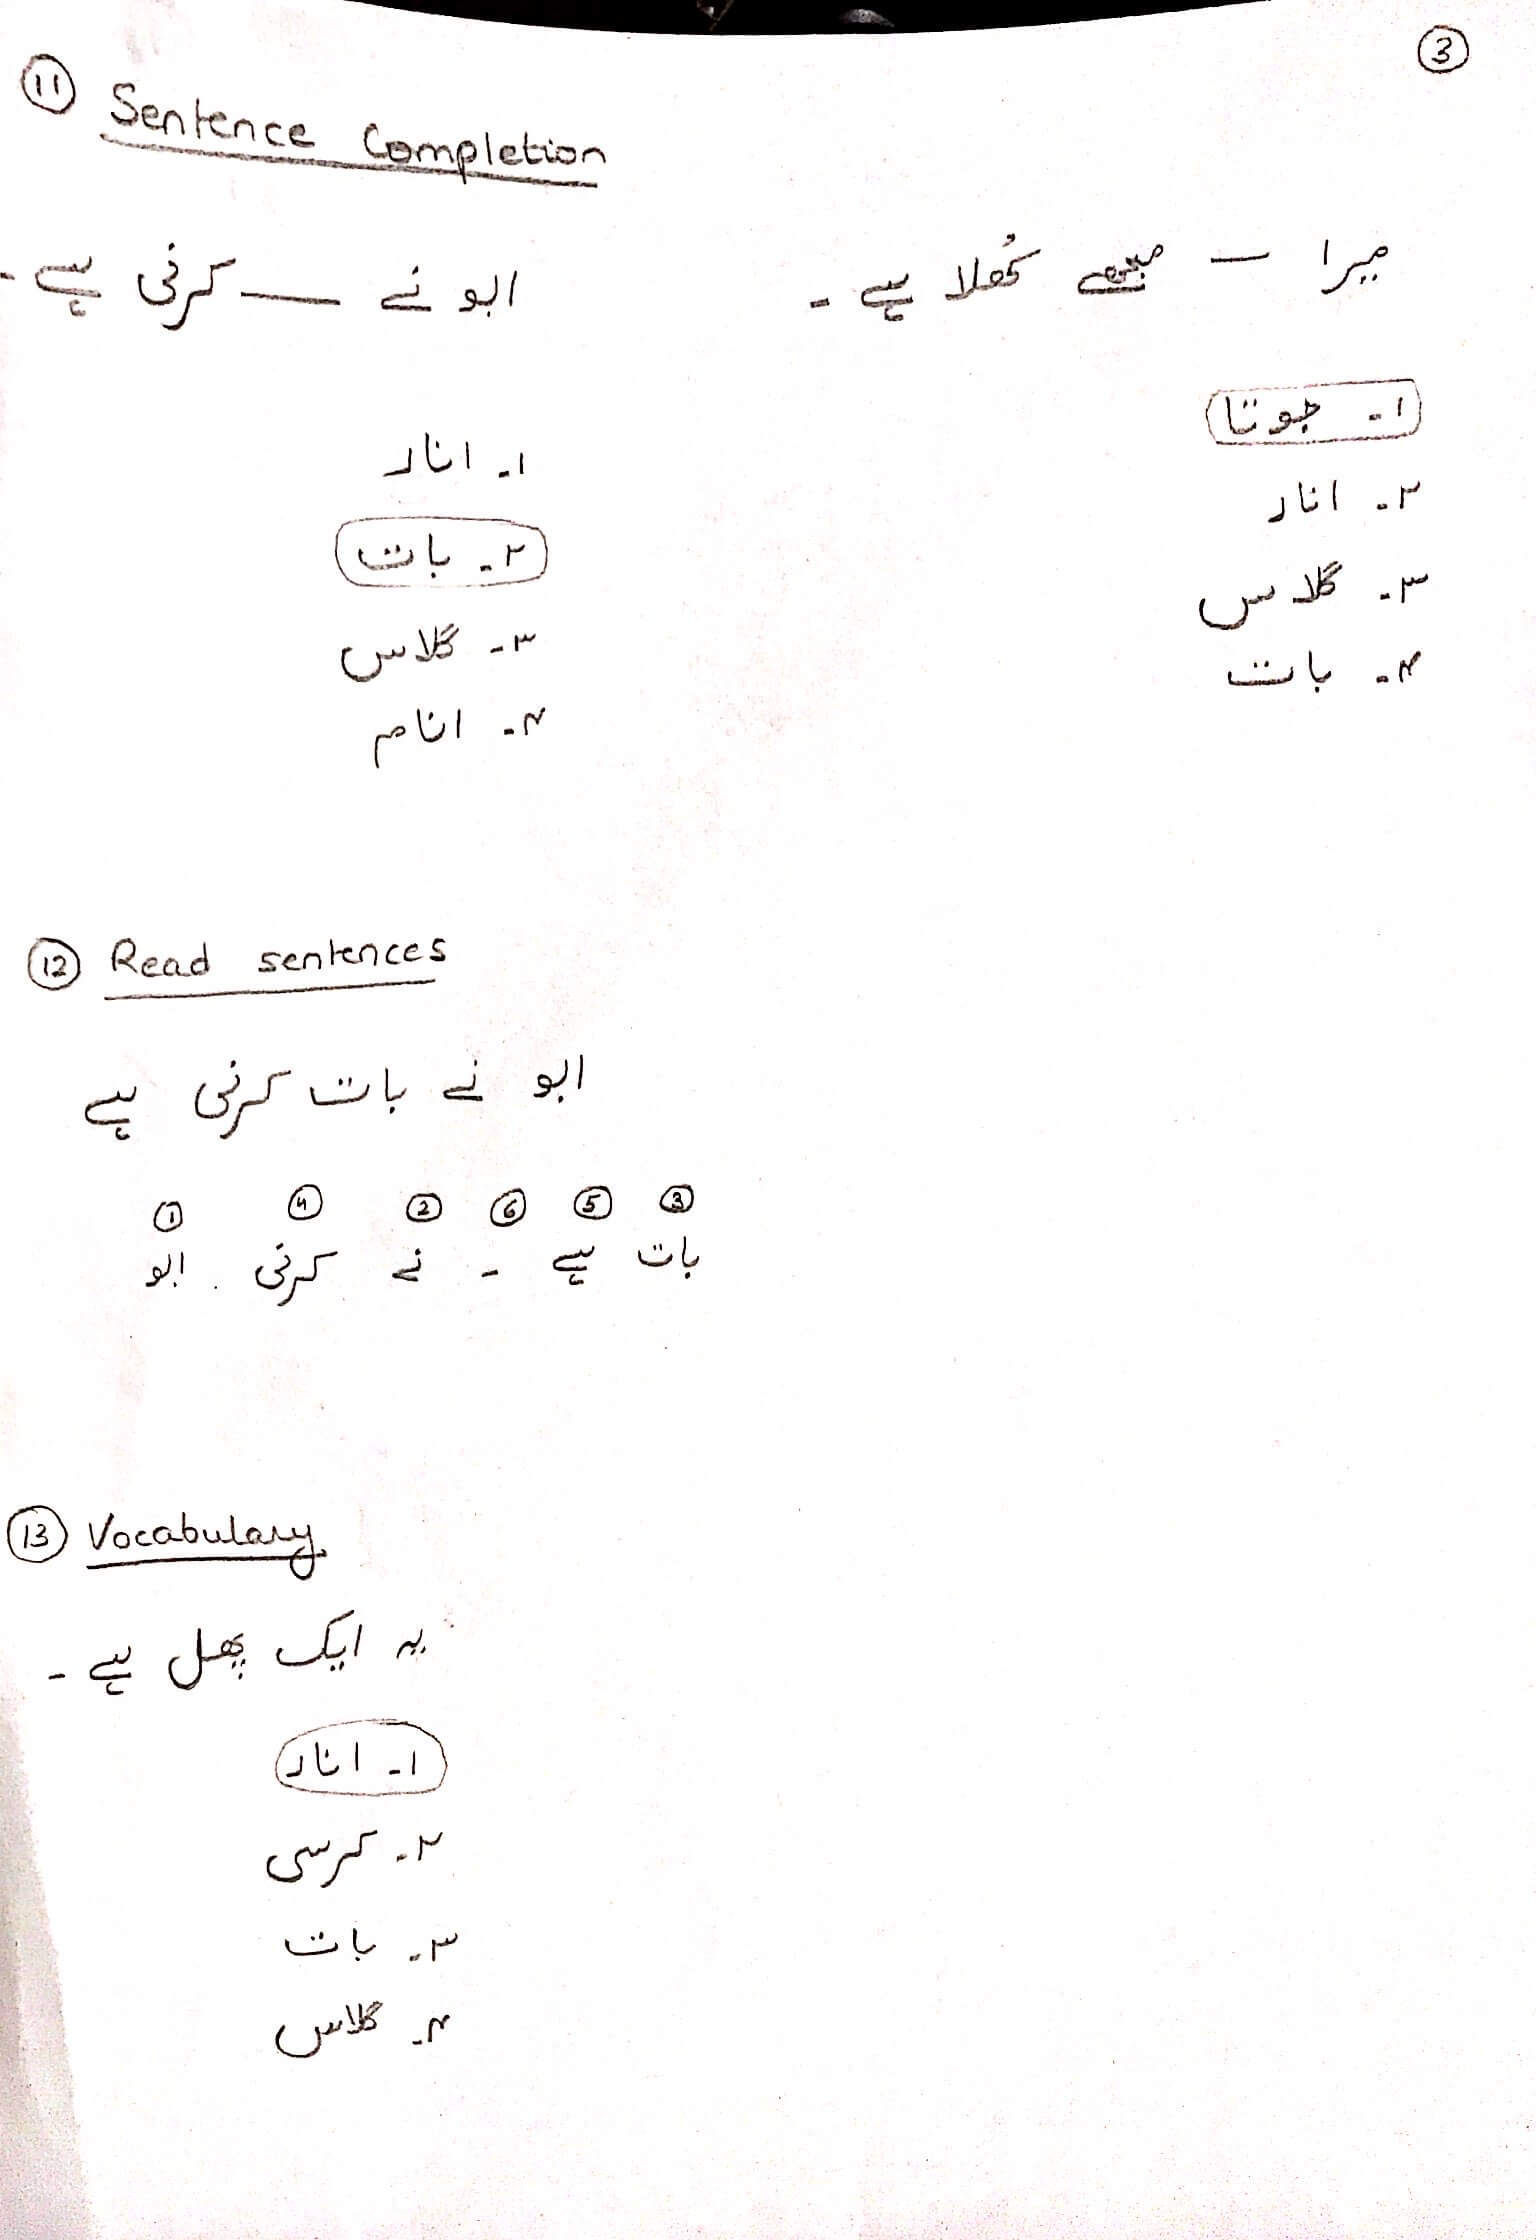 ③
⑪ Sentence Completion
میرا — مجھے کُھلا ہے ۔
۱۔ جوتا
۲۔ انار
۳۔ گلاس
۴۔ بات
ابو نے — کرنی ہے ۔
۱۔ انار
۲۔ بات
۳۔ گلاس
۴۔ انام
⑫ Read sentences
ابو نے بات کرنی ہے
① ④ ② ⑥ ⑤ ③
بات ہے ۔ نے کرنی ابو
⑬ Vocabulary
یہ ایک پھل ہے ۔
۱۔ انار
۲۔ کرسی
۳۔ بات
۴۔ گلاس